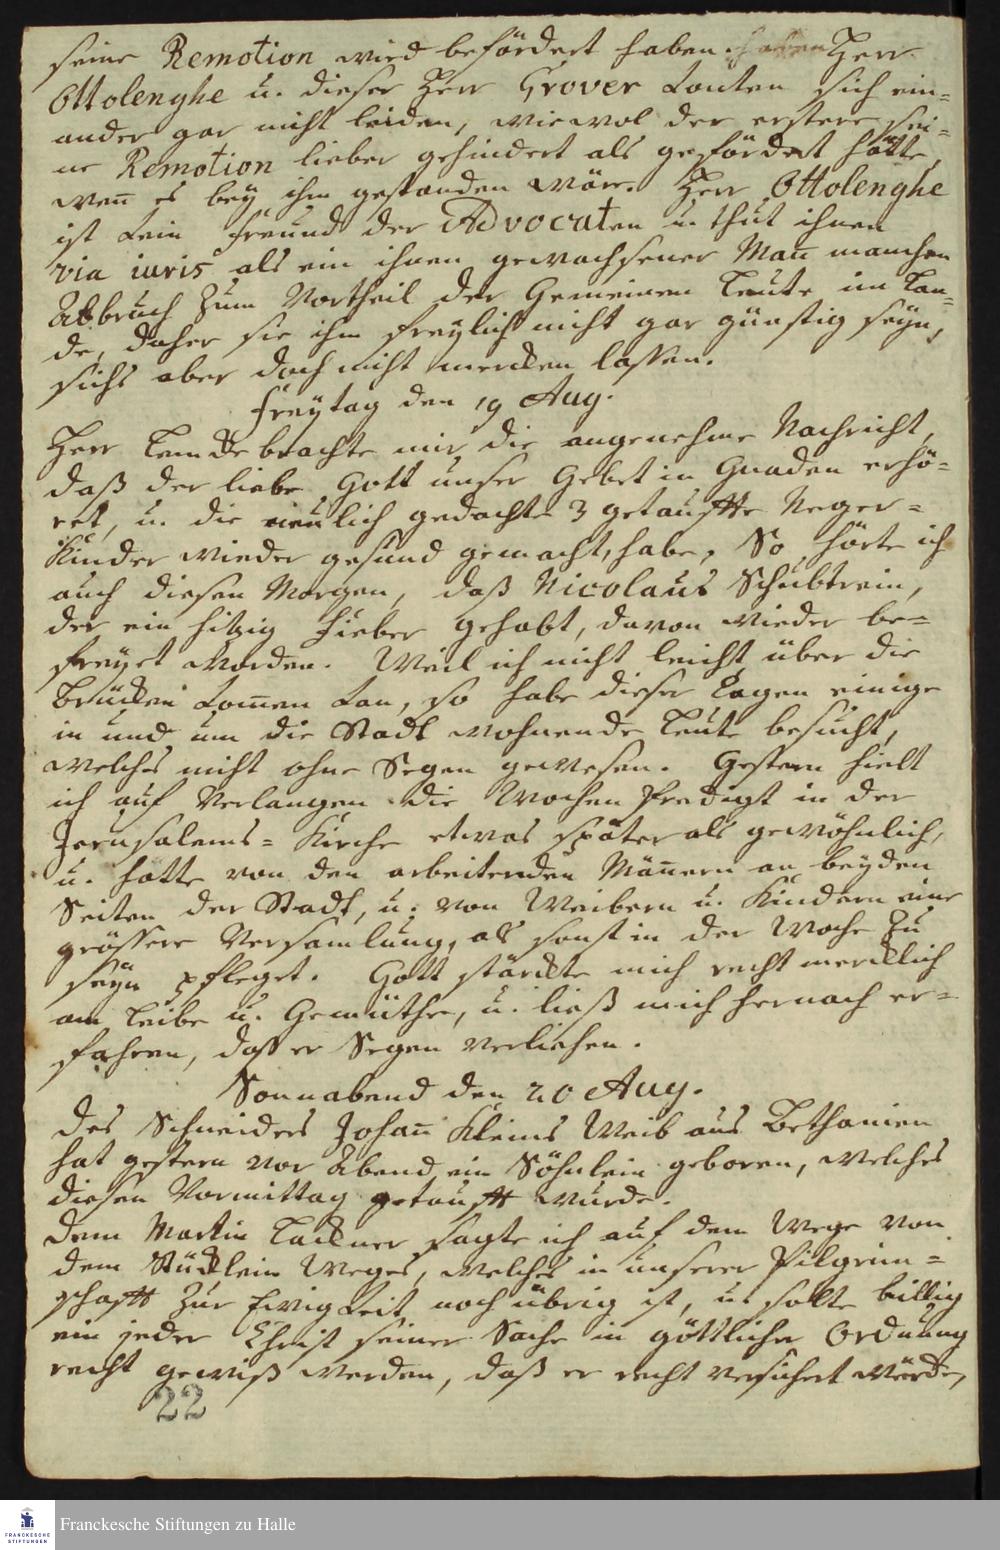 seine Remotion wird befördert haben. Herr
Ottolenghe u. dieser Herr Grover konten sich ein=
ander gar nicht leiden, wiewol der erstere sei=
ne Remotion lieber gehindert als gefördert hätte,
wen̄ es bey ihm gestanden wäre. Herr Ottolenghe
ist kein Freund der Advocaten u. thut ihnen
via iuris als ein ihnen gewachsener Man̄ manchen
Abbruch zum Vortheil der Gemeinen Leute im Lan=
de, daher sie ihm freylich nicht gar günstig seyn,
sichs aber doch nicht mercken lassen.
Freytag den 19 Aug.
Herr Lemcke brachte mir die angenehme Nachricht,
daß der liebe Gott unser Gebet in Gnaden erhö=
ret, u. die neulich gedachte 3 getauffte Neger=
Kinder wieder gesund gemacht habe. So hörte ich
auch diesen Morgen, daß Nicolaus Schubtrein,
der ein hitzig Fieber gehabt, davon wieder be=
freyet worden. Weil ich nicht leicht über die
Brücken kom̄en kan, so habe dieser Tagen einige
in und um die Stadt wohnende Leute besucht,
welches nicht ohne Segen gewesen. Gestern hielt
ich auf Verlangen die Wochen Predigt in der
Jerusalems=Kirche etwas später als gewöhnlich,
u. hatte von den arbeitenden Män̄ern an beyden
Seiten der Stadt, u. von Weibern u. Kindern eine
grössere Versamlung, als sonst in der Woche zu
seyn pfleget. Gott stärckte mich recht mercklich
am Leibe u. Gemüthe, u. ließ mich hernach er=
fahren, daß er Segen verliehen.
Sonnabend den 20 Aug.
Des Schneiders Johan̄ Kleins Weib aus Bethanien
hat gestern vor Abend ein Söhnlein geboren, welches
diesen Vormittag getaufft wurde.
Dem Martin Lackner sagte ich auf dem Wege von
dem Stücklein Weges, welches in unserer Pilgrim=
schafft zur Ewigkeit noch übrig ist, u. solte billig
ein jeder Christ seiner Sache in göttlicher Ordnung
recht gewiß werden, daß er recht versichert würde,
22
Franckesche Stiftungen zu Halle
FRANCKESCHE
STIFTUNGEN